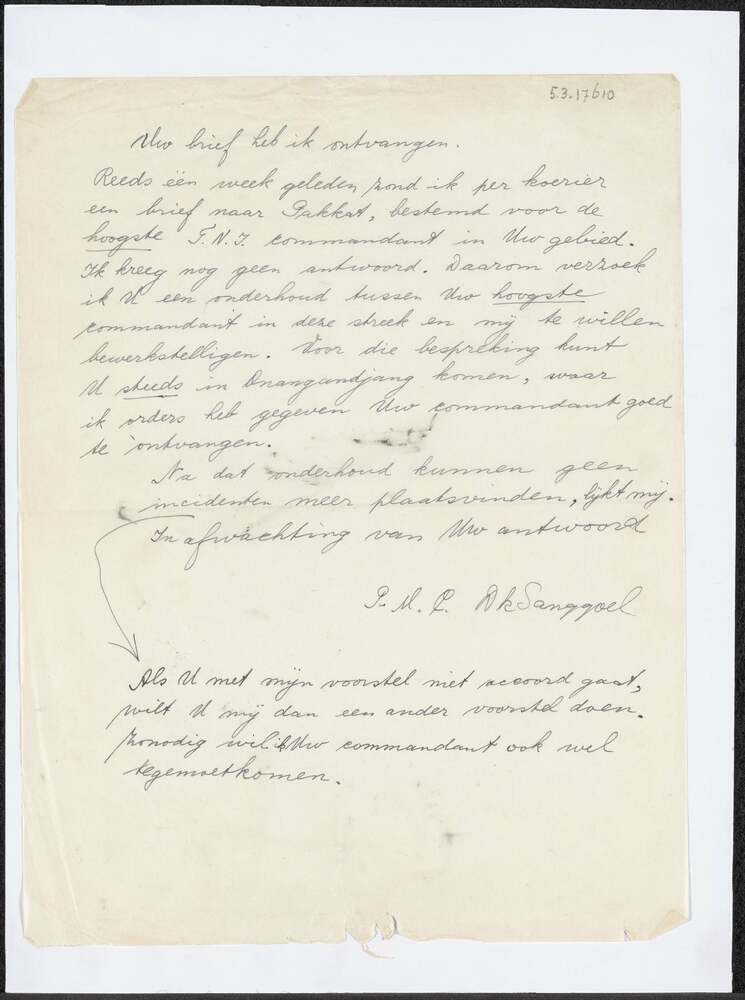 5.3.17610
Uw brief heb ik ontvangen.
Reeds één week geleden zond ik per koerier
een brief naar Pakkat, bestemd voor de
hoogste T.N.I. commandant in Uw gebied.
Ik kreeg nog geen antwoord. Daarom verzoek
ik U een onderhoud tussen Uw hoogste
commandant in deze streek en mij te willen
bewerkstelligen. Voor die bespreking kunt
U steeds in Onangandjang komen, waar
ik orders heb gegeven Uw commandant goed
te ontvangen.
Na dat onderhoud kunnen geen
incidenten meer plaatsvinden, lijkt mij.
In afwachting van Uw antwoord
P. M. C. Dk Sanggoel
Als U met mijn voorstel niet accoord gaat,
wilt U mij dan een ander voorstel doen.
Zonodig wil ik Uw commandant ook wel
tegemoetkomen.